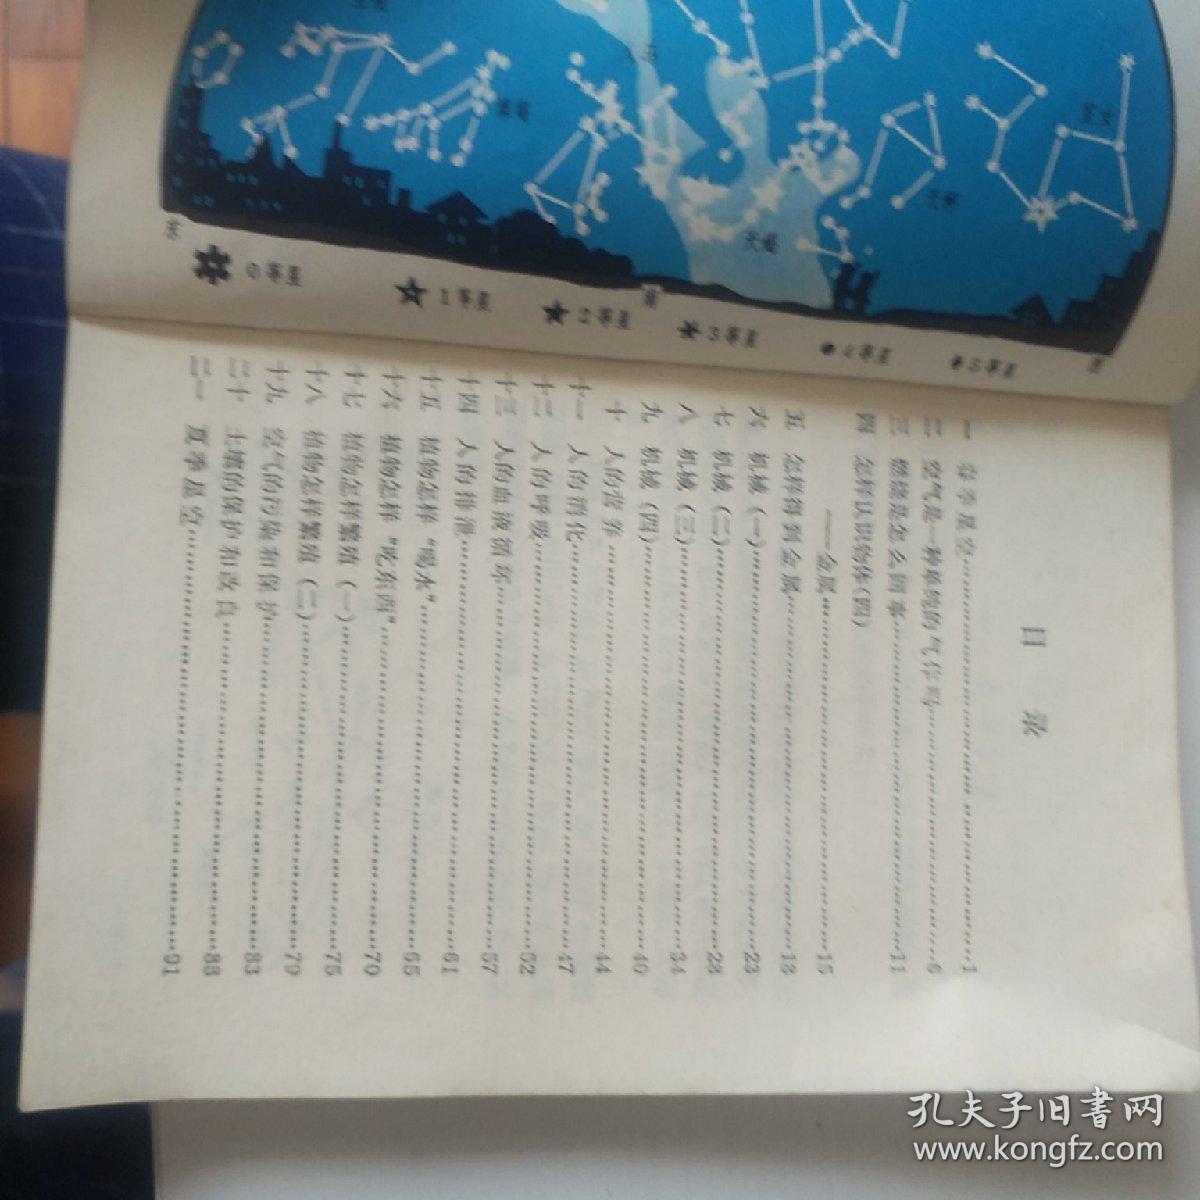 天蝎
东
南
西
0等星
1等星
2等星
3等星
4等星
5等星
目 录
一 春季星空……1
二 空气是一种单纯的气体吗……6
三 燃烧是怎么回事……11
四 怎样认识物体(四)
——金属……15
五 怎样得到金属……18
六 机械(一)……23
七 机械(二)……28
八 机械(三)……34
九 机械(四)……40
十 人的营养……44
十一 人的消化……47
十二 人的呼吸……52
十三 人的血液循环……57
十四 人的排泄……61
十五 植物怎样“喝水”……65
十六 植物怎样“吃东西”……70
十七 植物怎样繁殖(一)……75
十八 植物怎样繁殖(二)……79
十九 空气的污染和保护……83
二十 土壤的保护和改良……88
二一 夏季星空……91
孔夫子旧書网
www.kongfz.com